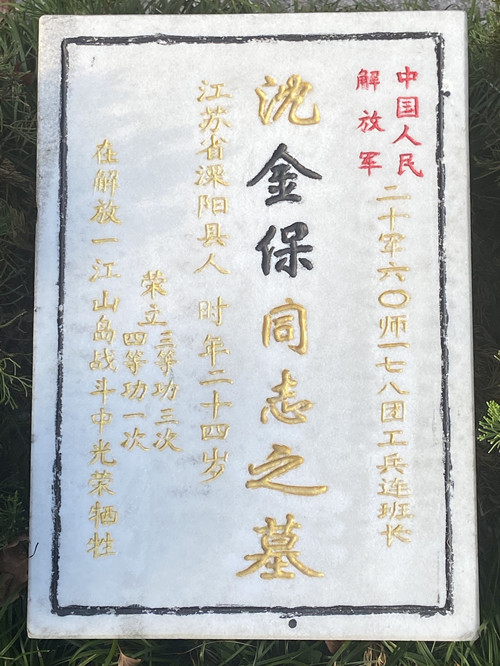 中国人民
解放军
二十军六〇师一七八团工兵连班长
沈金保同志之墓
江苏省溧阳县人 时年二十四岁
荣立三等功三次
四等功一次
在解放一江山岛战斗中光荣牺牲